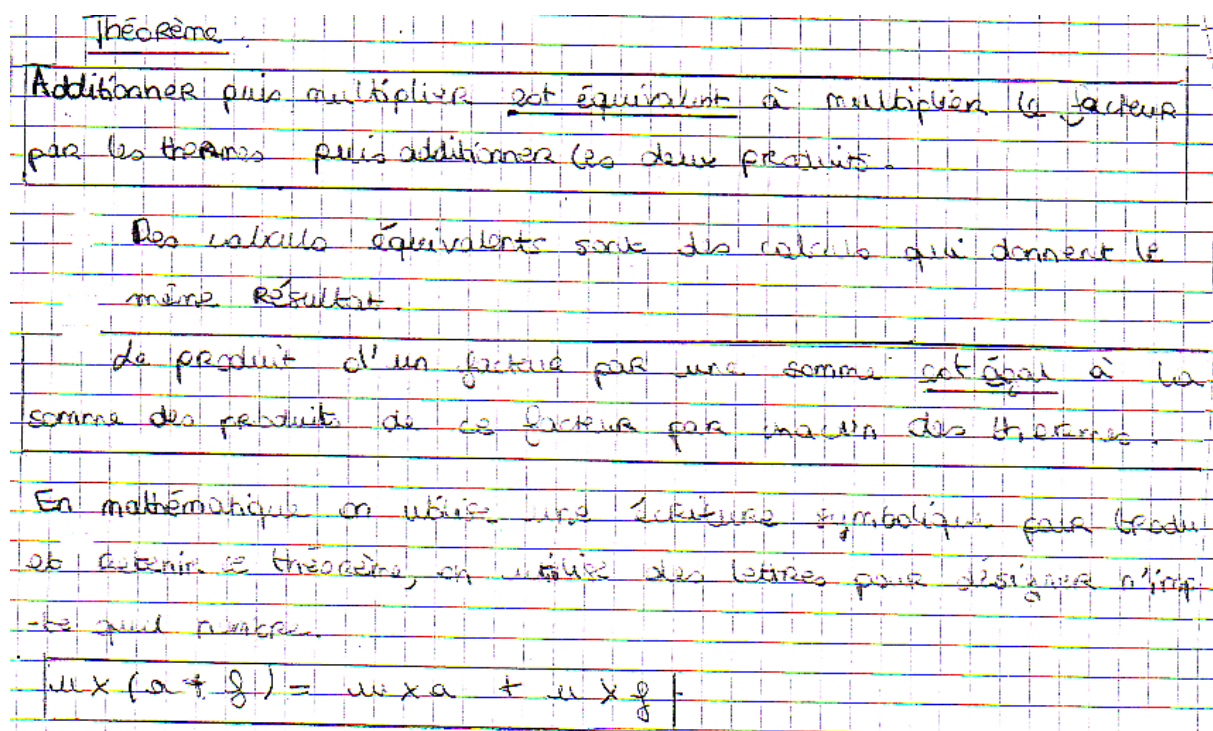 Théorème.
Additionner puis multiplier est équivalent à multiplier le facteur
par les thermes puis additionner les deux produits.
Des calculs équivalents sont des calculs qui donnent le
même Résultat.
Le produit d'un facteur par une somme est égal à la
somme des produits de ce facteur par chacun des thermes.
En mathématique on utilise une écriture symbolique pour tradu
et retenir ce théorème, on utilise des lettres pour désigner n'imp
-te quel nombre.
u x (a + f) = u x a + u x f